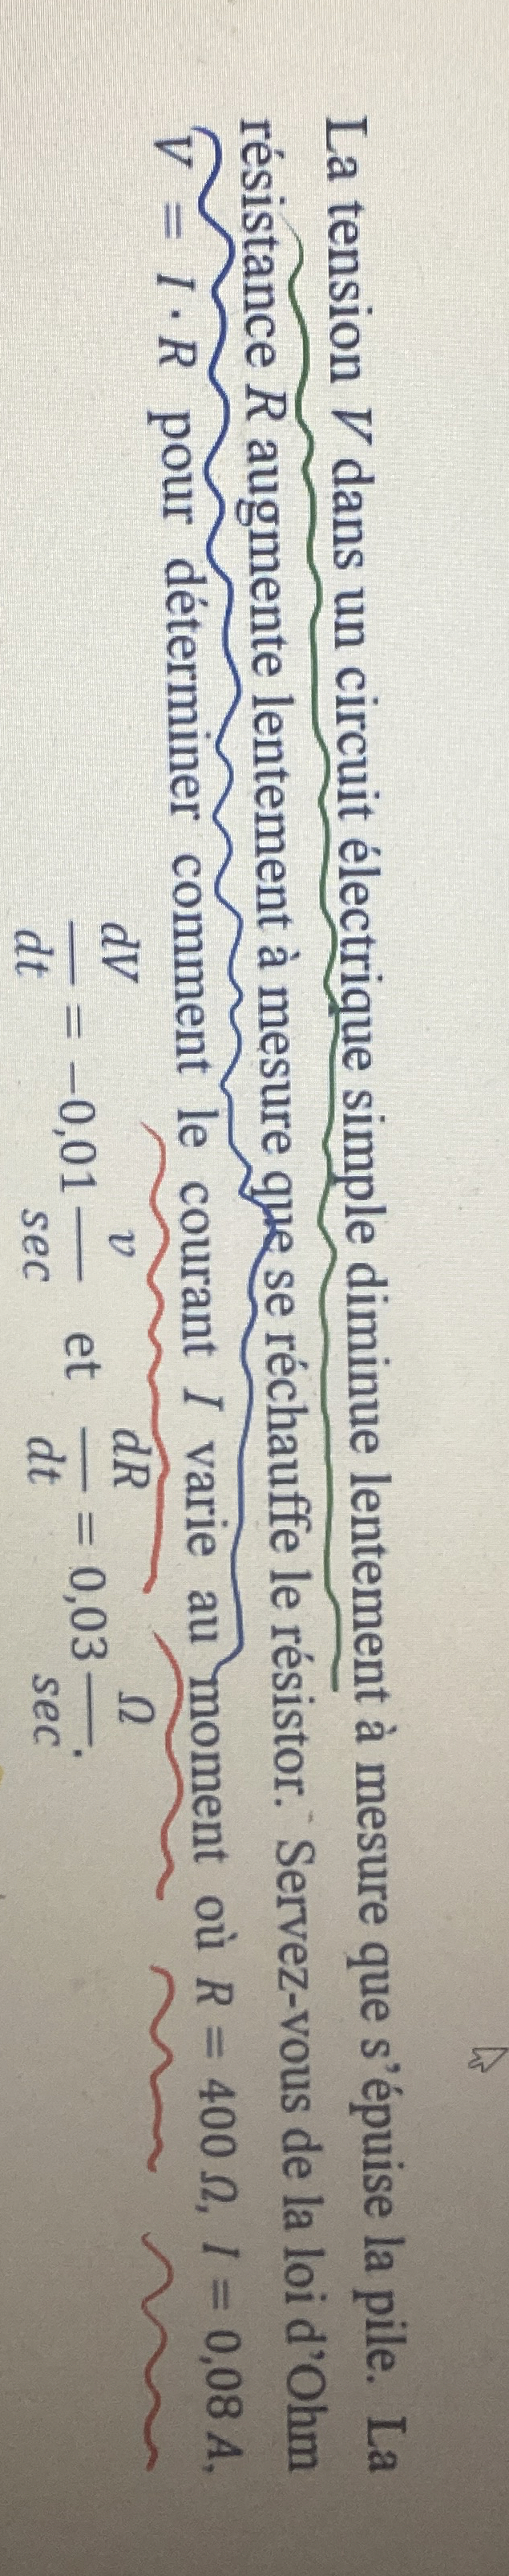 La tension V dans un circuit électrique simple diminue lentement à mesure que s'épuise la pile. La
résistance R augmente lentement à mesure que se réchauffe le résistor. Servez-vous de la loi d'Ohm
V = I · R pour déterminer comment le courant I varie au moment où R = 400 Ω, I = 0,08 A,
dV/dt = −0,01 v/sec et dR/dt = 0,03 Ω/sec.